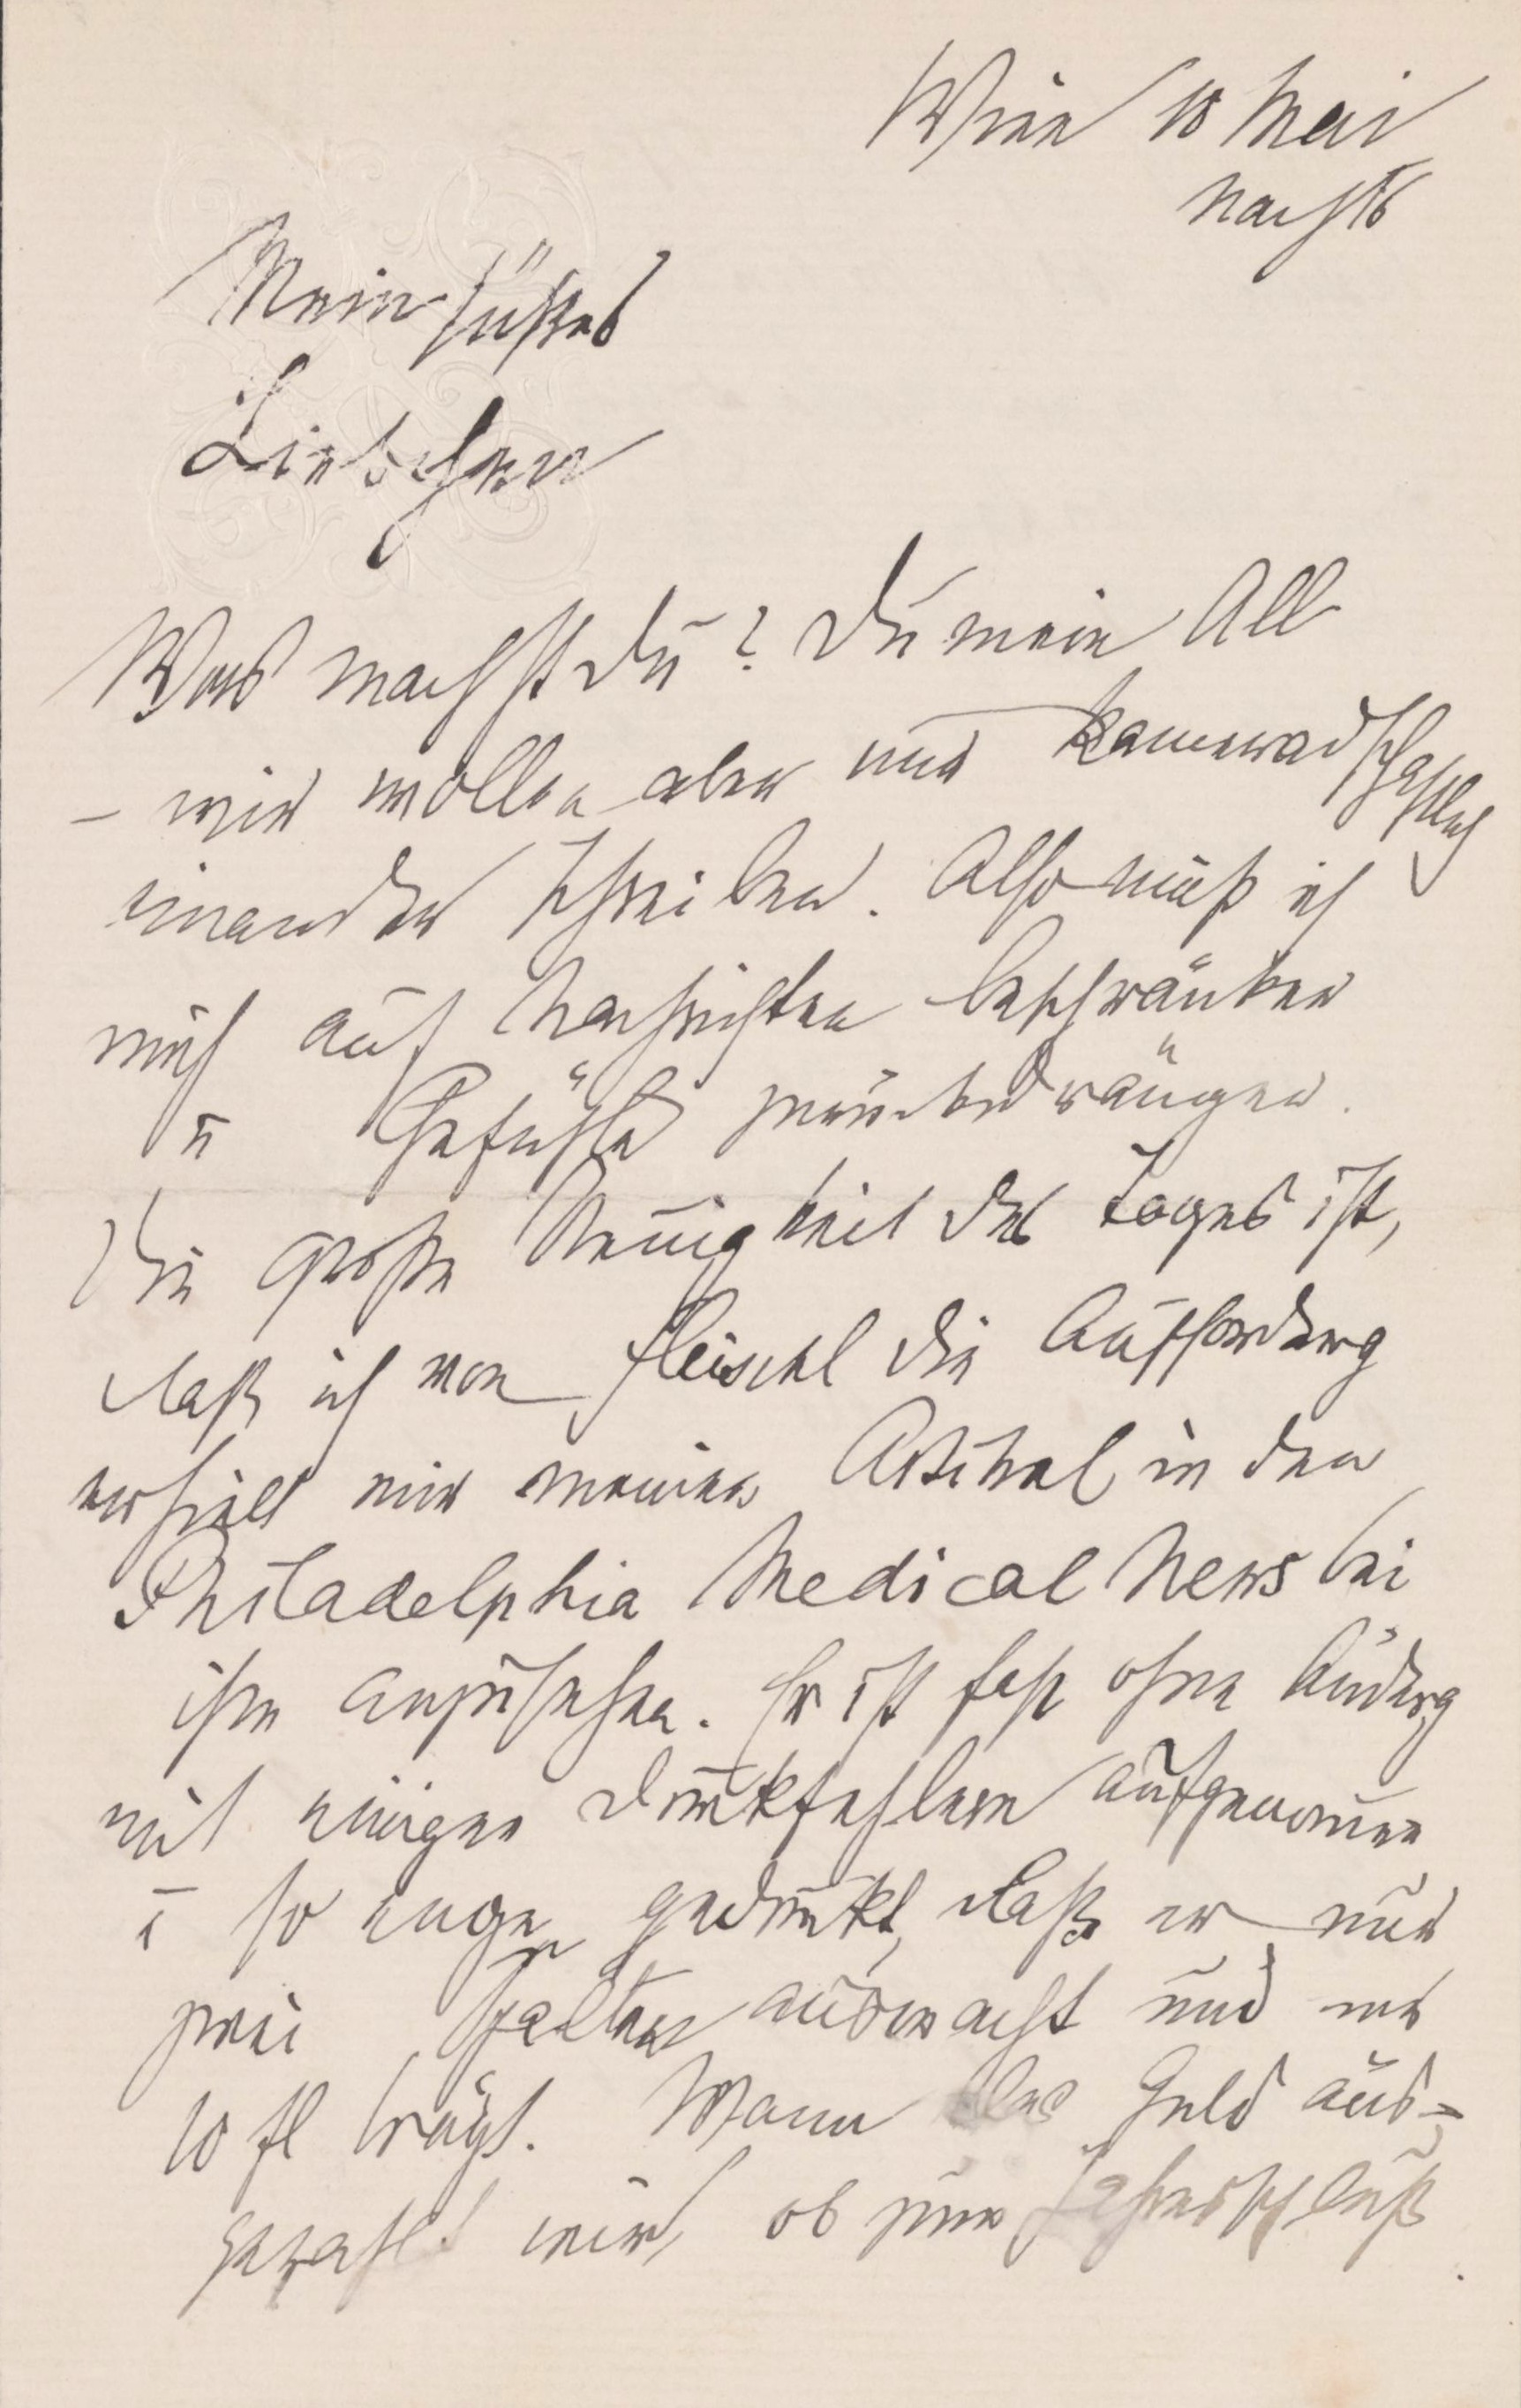 Wien 10 Mai
nachts
Mein süßes
Liebchen
Was machst Du? Du mein All
– wir wollen aber nur kameradschaftlich
einander schreiben. Also muß ich
mich auf Nachrichten beschränken
u Gefühle zurückdrängen.
Die große Neuigkeit des Tages ist,
daß ich von Fleischl die Aufforderg
erhielt mir meinen Artikel in den
Philadelphia Medical News bei
ihm anzusehen. Er ist fast ohne Änderg
mit einigen Druckfehlern aufgenom̅en
u so enge gedruckt, daß er nur
zwei Spalten ausmacht und nur
10 fl trägt. Wann das Geld aus=
gezahlt wird, ob zum Jahresschluß